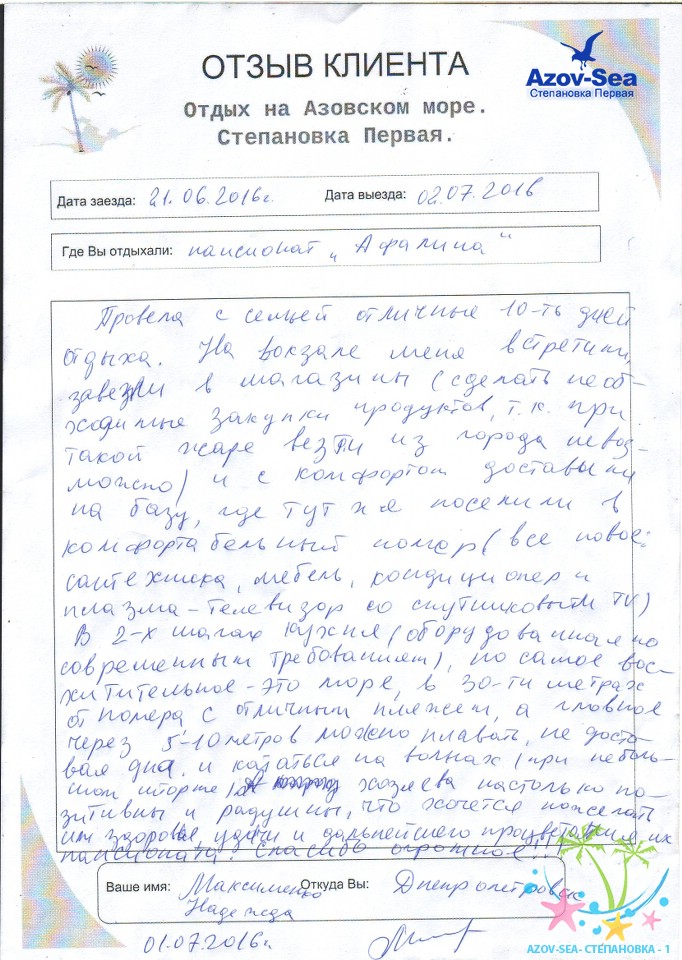 ОТЗЫВ КЛИЕНТА
Azov-Sea
Степановка Первая
Отдых на Азовском море.
Степановка Первая.
Дата заезда: 21.06.2016г. Дата выезда: 02.07.2016
Где Вы отдыхали: пансионат "Афалина"
Провела с семьей отличные 10-ть дней
отдыха. На вокзале меня встретили,
завезли в магазины (сделать необ-
ходимые закупки продуктов, т.к. при
такой жаре везти из города невоз-
можно) и с комфортом доставили
на базу, где тут же поселили в
комфортабельный номер (все новое:
сантехника, мебель, кондиционер и
плазма-телевизор со спутниковым TV)
В 2-х шагах кухня (оборудованная по
современным требованиям), но самое вос-
хитительное - это море, в 30-ти метрах
от номера с отличным пляжем, а главное
через 5-10 метров можно плавать, не доста-
вая дна и кататься на волнах (при неболь-
шом шторме) хозяева настолько по-
зитивны и радушны, что хочется пожелать
им здоровья, удачи и дальнейшего процветания их
пансионата! Спасибо огромное!!!
Ваше имя: Максименко Откуда Вы: Днепропетровск
Надежда
01.07.2016г.
AZOV-SEA- СТЕПАНОВКА - 1